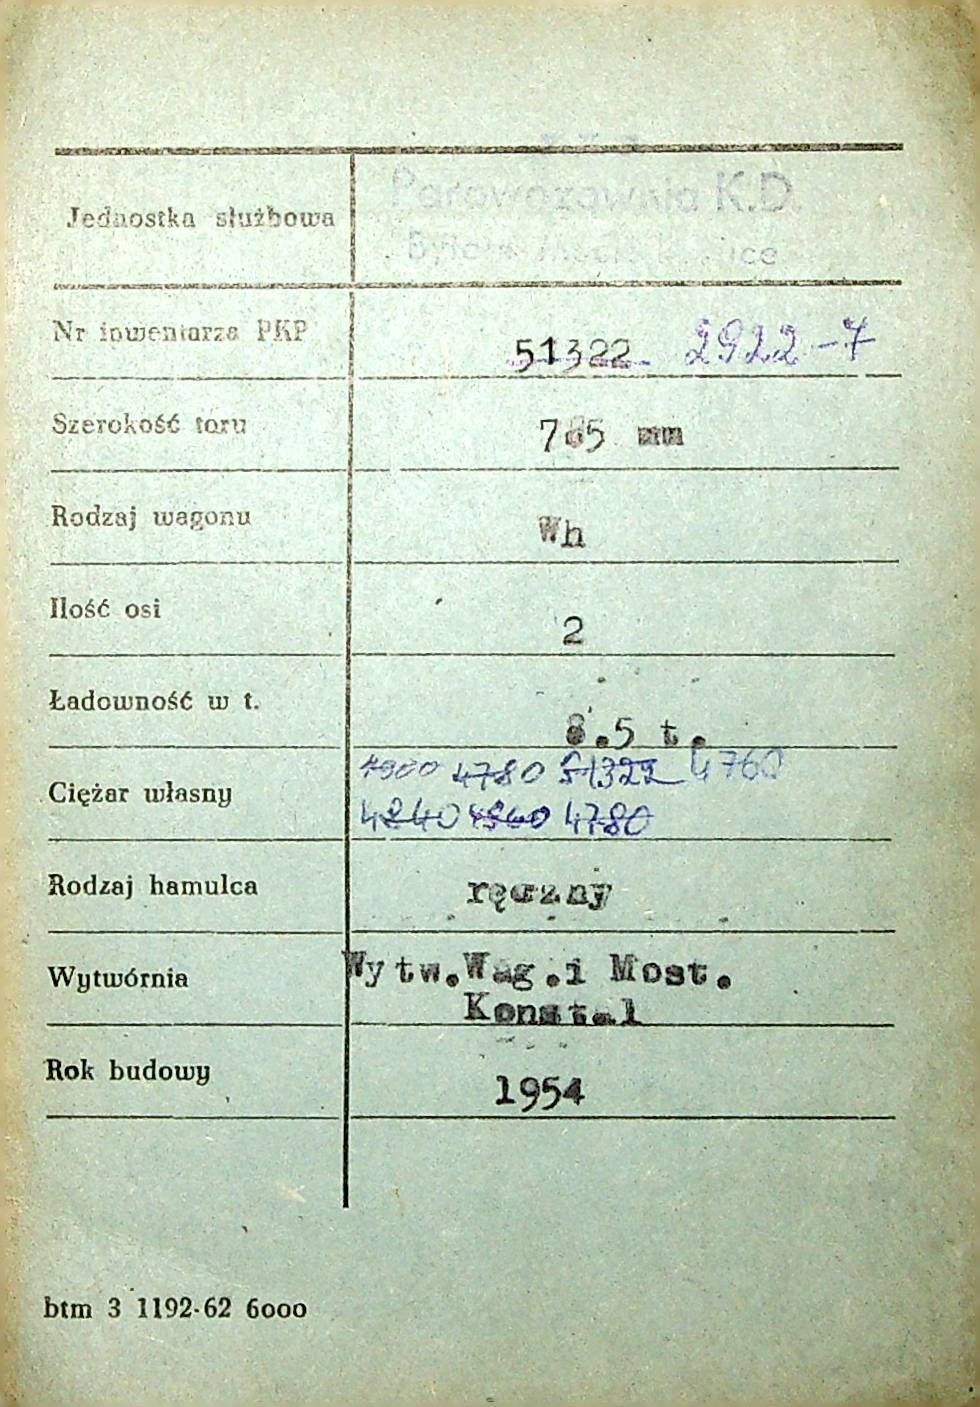 Jednostka służbowa
Parowozownia K.D.
Bytom
Nr inwentarza PKP 51322 2922-7
Szerokość toru 785 mm
Rodzaj wagonu Wh
Ilość osi 2
Ładowność w t. 8.5 t.
4900 4780 51322 4760
Ciężar własny
4840 4860 4780
Rodzaj hamulca ręczny
Wytw.Wag.i Most.
Wytwórnia
Konstal
Rok budowy 1954
btm 3 1192-62 6000